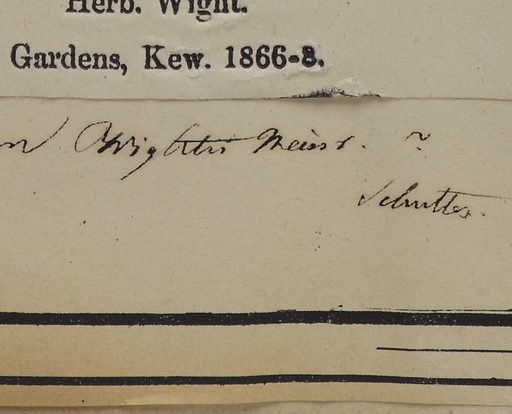 Herb. Wight.
Gardens, Kew. 1866-8.
Wightii Meisn. ?